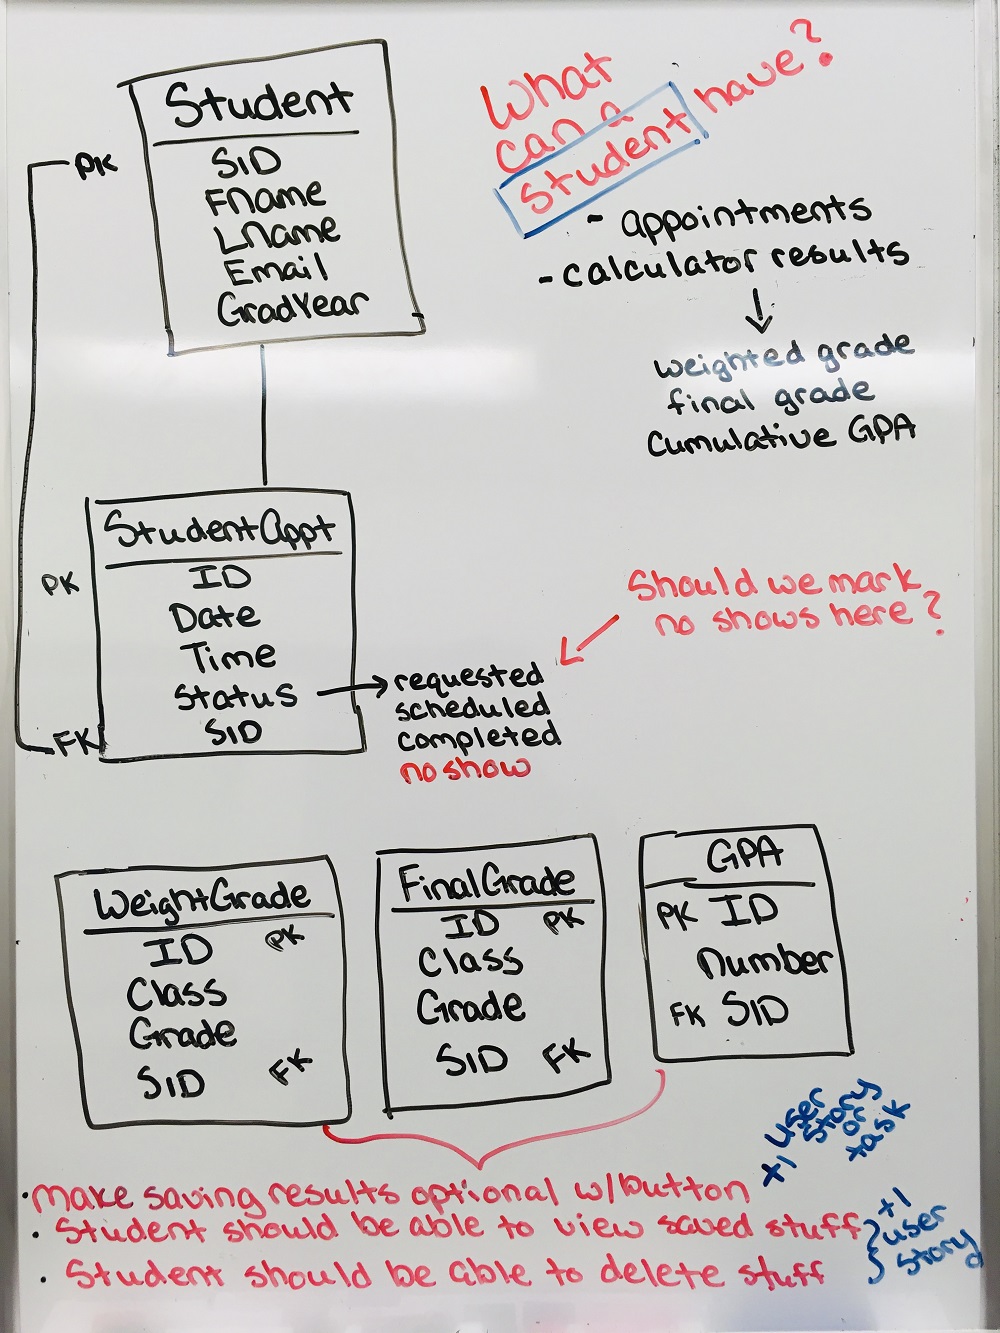 Student
PK
SID
Fname
Lname
Email
GradYear
What
can a
student have?
- appointments
- calculator results
weighted grade
final grade
cumulative GPA
StudentAppt
PK
ID
Date
Time
Status
FK
SID
requested
scheduled
completed
no show
Should we mark
no shows here?
WeightGrade
ID PK
Class
Grade
SID FK
FinalGrade
ID PK
Class
Grade
SID FK
GPA
PK ID
Number
FK SID
+1 user
story
or
task
• make saving results optional w/button
• Student should be able to view saved stuff
• Student should be able to delete stuff
+1
user
story